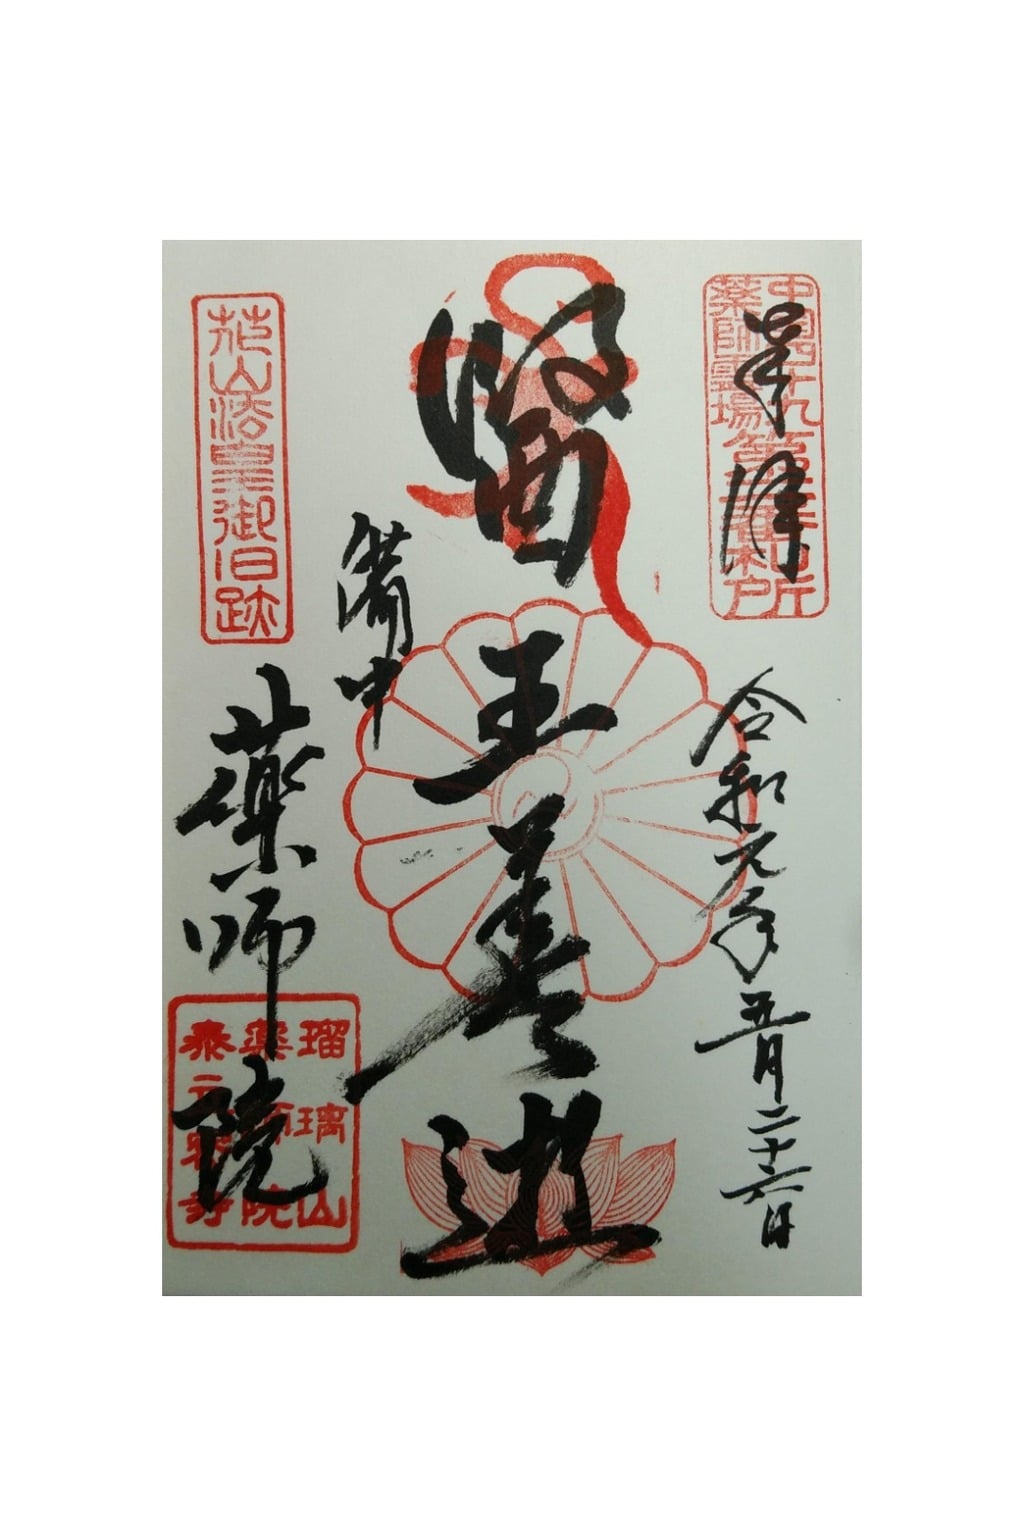 奉拝
中国四十九
薬師霊場
札所
令和元年五月二十六日
醫王善逝
備中
薬師院
花山法皇御旧跡
瑠璃山
薬師院
泰立寺